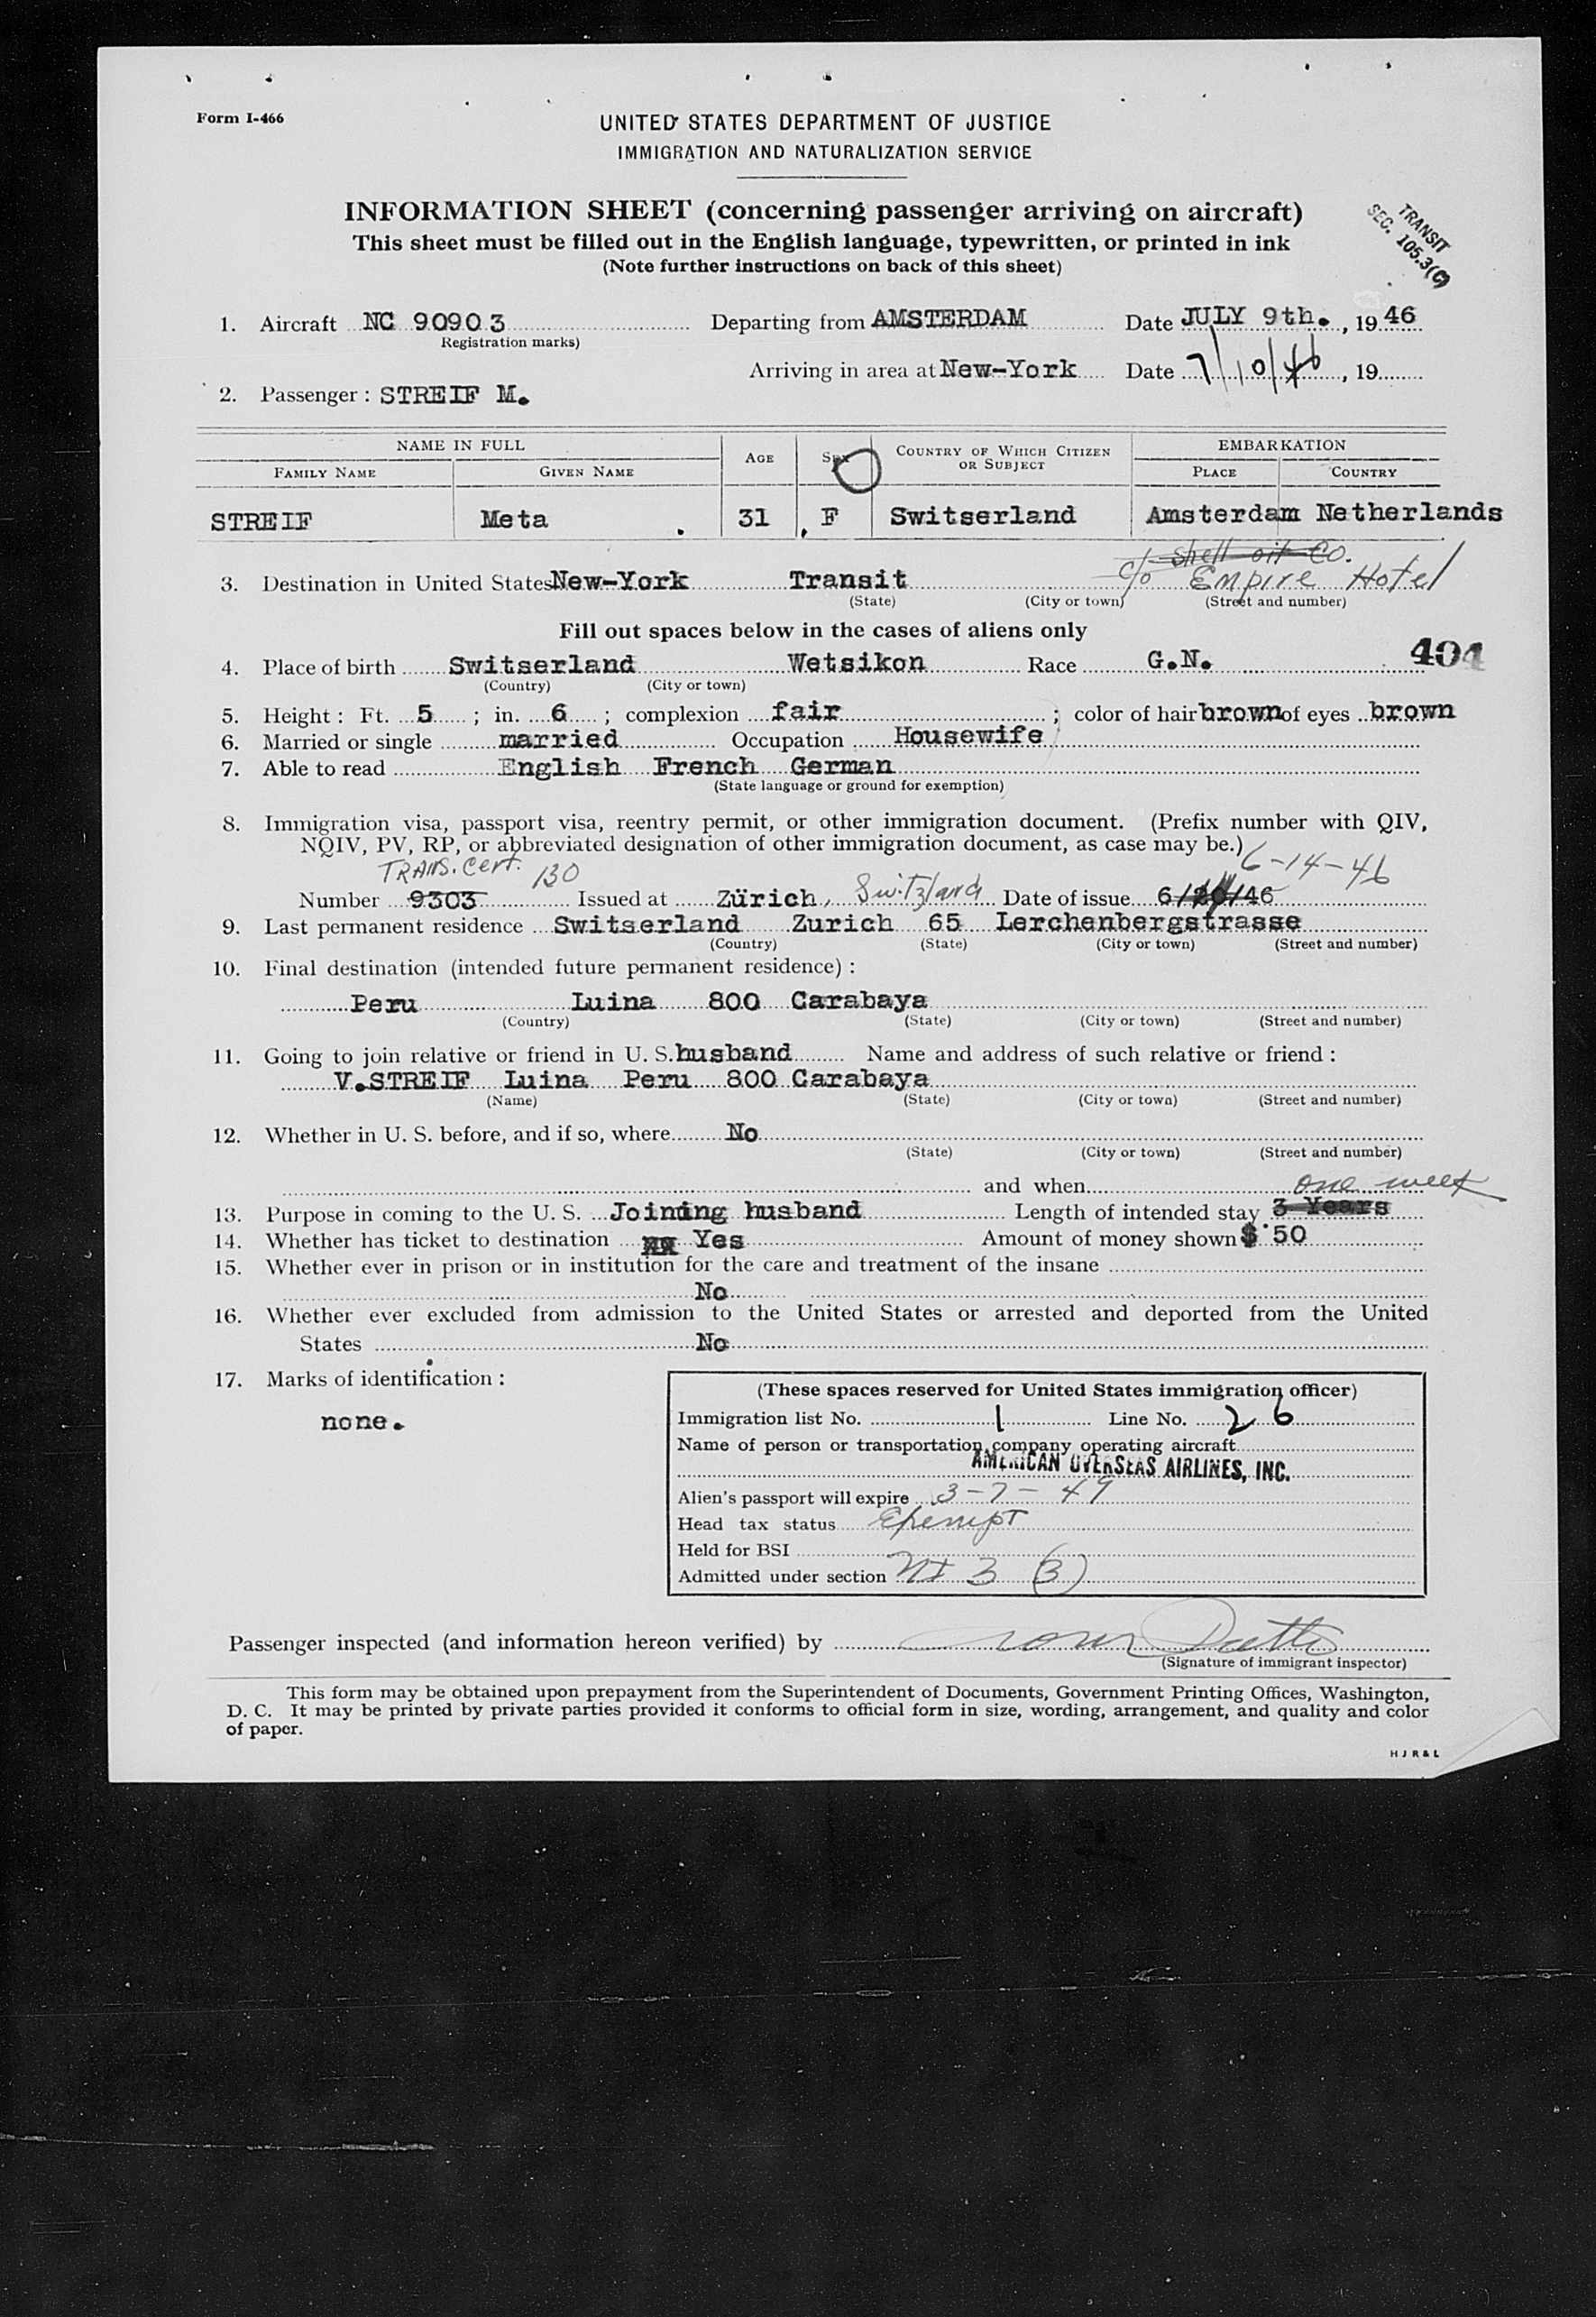 Form I-466
UNITED STATES DEPARTMENT OF JUSTICE
IMMIGRATION AND NATURALIZATION SERVICE
INFORMATION SHEET (concerning passenger arriving on aircraft)
This sheet must be filled out in the English language, typewritten, or printed in ink
(Note further instructions on back of this sheet)
TRANSIT
SEC. 105.3(C)
1. Aircraft NC 90903 Departing from AMSTERDAM Date JULY 9th. , 19 46
(Registration marks)
Arriving in area at New-York Date 7/10/46 , 19
2. Passenger : STREIF M.
NAME IN FULL AGE SEX COUNTRY OF WHICH CITIZEN OR SUBJECT EMBARKATION
FAMILY NAME GIVEN NAME PLACE COUNTRY
STREIF Meta . 31 F Switserland Amsterdam Netherlands
c/o Shell oil Co.
3. Destination in United States New-York Transit Empire Hotel
(State) (City or town) (Street and number)
Fill out spaces below in the cases of aliens only
404
4. Place of birth Switserland Wetsikon Race G.N.
(Country) (City or town)
5. Height : Ft. 5 ; in. 6 ; complexion fair ; color of hair brown of eyes brown
6. Married or single married Occupation Housewife
7. Able to read English French German
(State language or ground for exemption)
8. Immigration visa, passport visa, reentry permit, or other immigration document. (Prefix number with QIV,
NQIV, PV, RP, or abbreviated designation of other immigration document, as case may be.)
TRANS. Cert. 130 6-14-46
Number 9303 Issued at Zürich, Switzland Date of issue 6/20/46
9. Last permanent residence Switserland Zurich 65 Lerchenbergstrasse
(Country) (State) (City or town) (Street and number)
10. Final destination (intended future permanent residence) :
Peru Luina 800 Carabaya
(Country) (State) (City or town) (Street and number)
11. Going to join relative or friend in U. S. husband Name and address of such relative or friend :
V.STREIF Luina Peru 800 Carabaya
(Name) (State) (City or town) (Street and number)
12. Whether in U. S. before, and if so, where No
(State) (City or town) (Street and number)
and when
one week
13. Purpose in coming to the U. S. Joining husband Length of intended stay 3 Years
14. Whether has ticket to destination Yes Amount of money shown $ 50
15. Whether ever in prison or in institution for the care and treatment of the insane
No
16. Whether ever excluded from admission to the United States or arrested and deported from the United
States No
17. Marks of identification :
none.
(These spaces reserved for United States immigration officer)
Immigration list No. 1 Line No. 26
Name of person or transportation company operating aircraft
AMERICAN OVERSEAS AIRLINES, INC.
Alien's passport will expire 3-7-49
Head tax status Exempt
Held for BSI
Admitted under section NI 3 (3)
Passenger inspected (and information hereon verified) by
(Signature of immigrant inspector)
This form may be obtained upon prepayment from the Superintendent of Documents, Government Printing Offices, Washington,
D. C. It may be printed by private parties provided it conforms to official form in size, wording, arrangement, and quality and color
of paper.
H J R & L